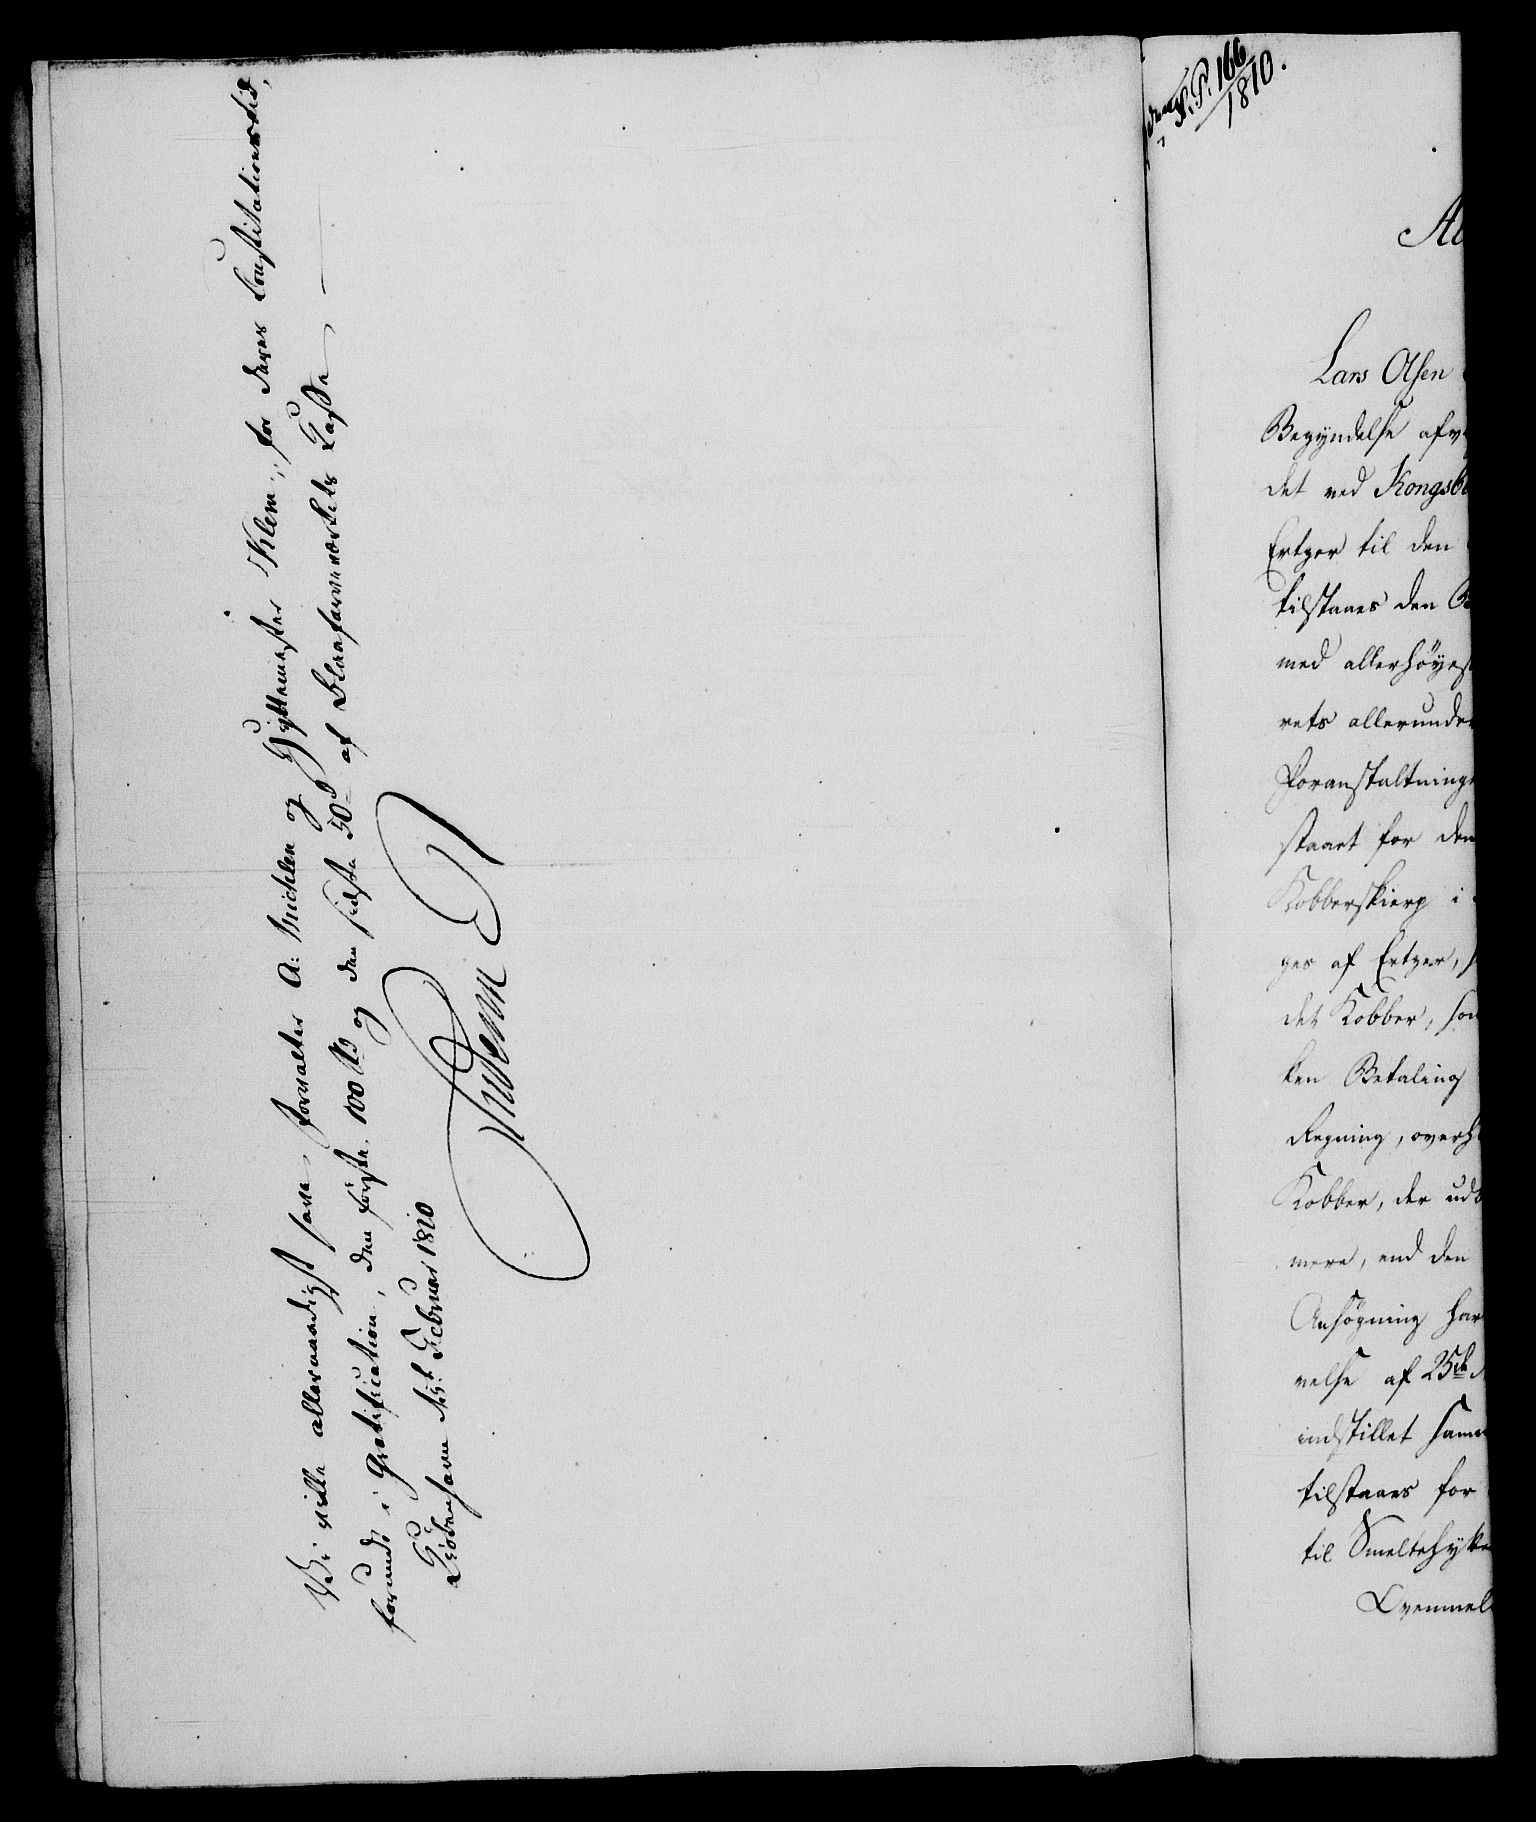 Vi ville allernaadigst have Forvalter A: Michlen og Hyttemester Klem, for deres Constitutionstid,
forundt i Gratification, den første 100 Rd og den sidste 50 d af Blaafarveværkets Casse
Kiöbenhavn Febrüar 1810
S. P. 166
1810.
Al
Lars Olsen
Begyndelse afv
det ved Kongsb
Ertzer til den
tilstaaes den
med allerhöyest
rets allerunder
Foranstaltning
staaet for den
Kobberskierp i
ges af Ertzer,
det Kobber, som
ken Betaling
Regning, overh
Kobber, der udb
mere, end den
Ansøgning har
velse af 25de
indstillet sam
tilstaaes for
til Smeltehytte
Ovenmel